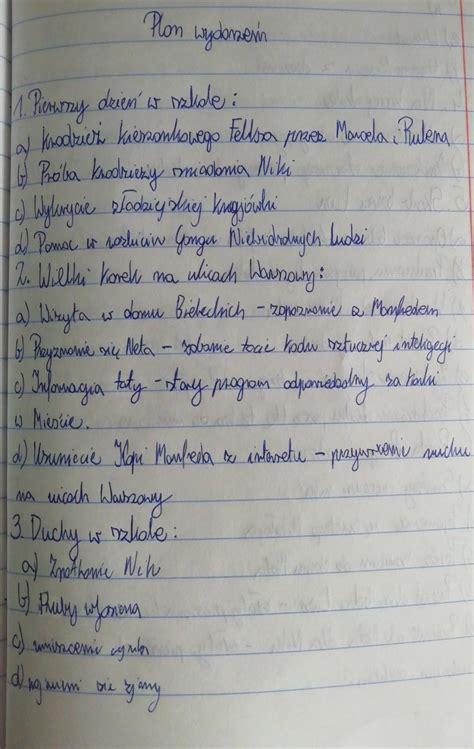 Plan wydarzeń
1. Pierwszy dzień w szkole:
a) kradzież kieszonkowego Feliksa przez Marcela i Rubena
b) Próba kradzieży śniadania Niki
c) Wykrycie złodziejskiej kryjówki
d) Pomoc w rozbiciu Gangu Niewidzialnych ludzi
2. Wielki korek na ulicach Warszawy:
a) Wizyta w domu Bieleckich – zapoznanie z Manfredem
b) Przyznanie się Neta – zabranie części kodu sztucznej inteligecji
c) Informacja taty – stary program odpowiedzialny za korki
w Mieście.
d) Usunięcie Kopi Manfreda z internetu – przywrócenie ruchu
na ulicach Warszawy
3. Duchy w szkole:
a) Spotkanie Niki
b)
c)
d) się ściany